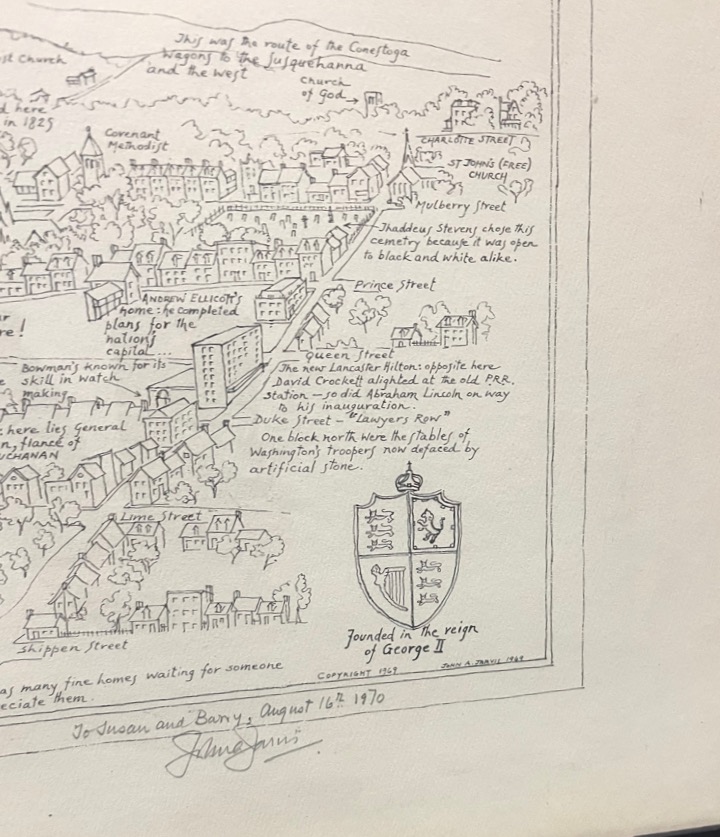 This was the route of the Conestoga
Wagons to the Susquehanna
and the West
st Church
Church
of God
d here
in 1825
Covenant
Methodist
CHARLOTTE STREET
ST JOHN'S (FREE)
CHURCH
Mulberry Street
Thaddeus Stevens chose this
cemetry because it was open
to black and white alike.
Prince Street
ANDREW ELLICOTT'S
home: he completed
plans for the
nation's
capital...
re!
Queen Street
Bowman's known for its
skill in watch
making
The new Lancaster Hilton: opposite here
David Crockett alighted at the old P.R.R.
Station — so did Abraham Lincoln on way
to his inauguration.
Duke Street – "Lawyers Row"
One block north were the stables of
Washington's troopers now defaced by
artificial stone.
here lies General
n, fiance of
UCHANAN
Lime Street
Shippen Street
Founded in the reign
of George II
as many fine homes waiting for someone
eciate them.
COPYRIGHT 1969
JOHN A. JARVIS 1969
To Susan and Barry, August 16th 1970
John A Jarvis